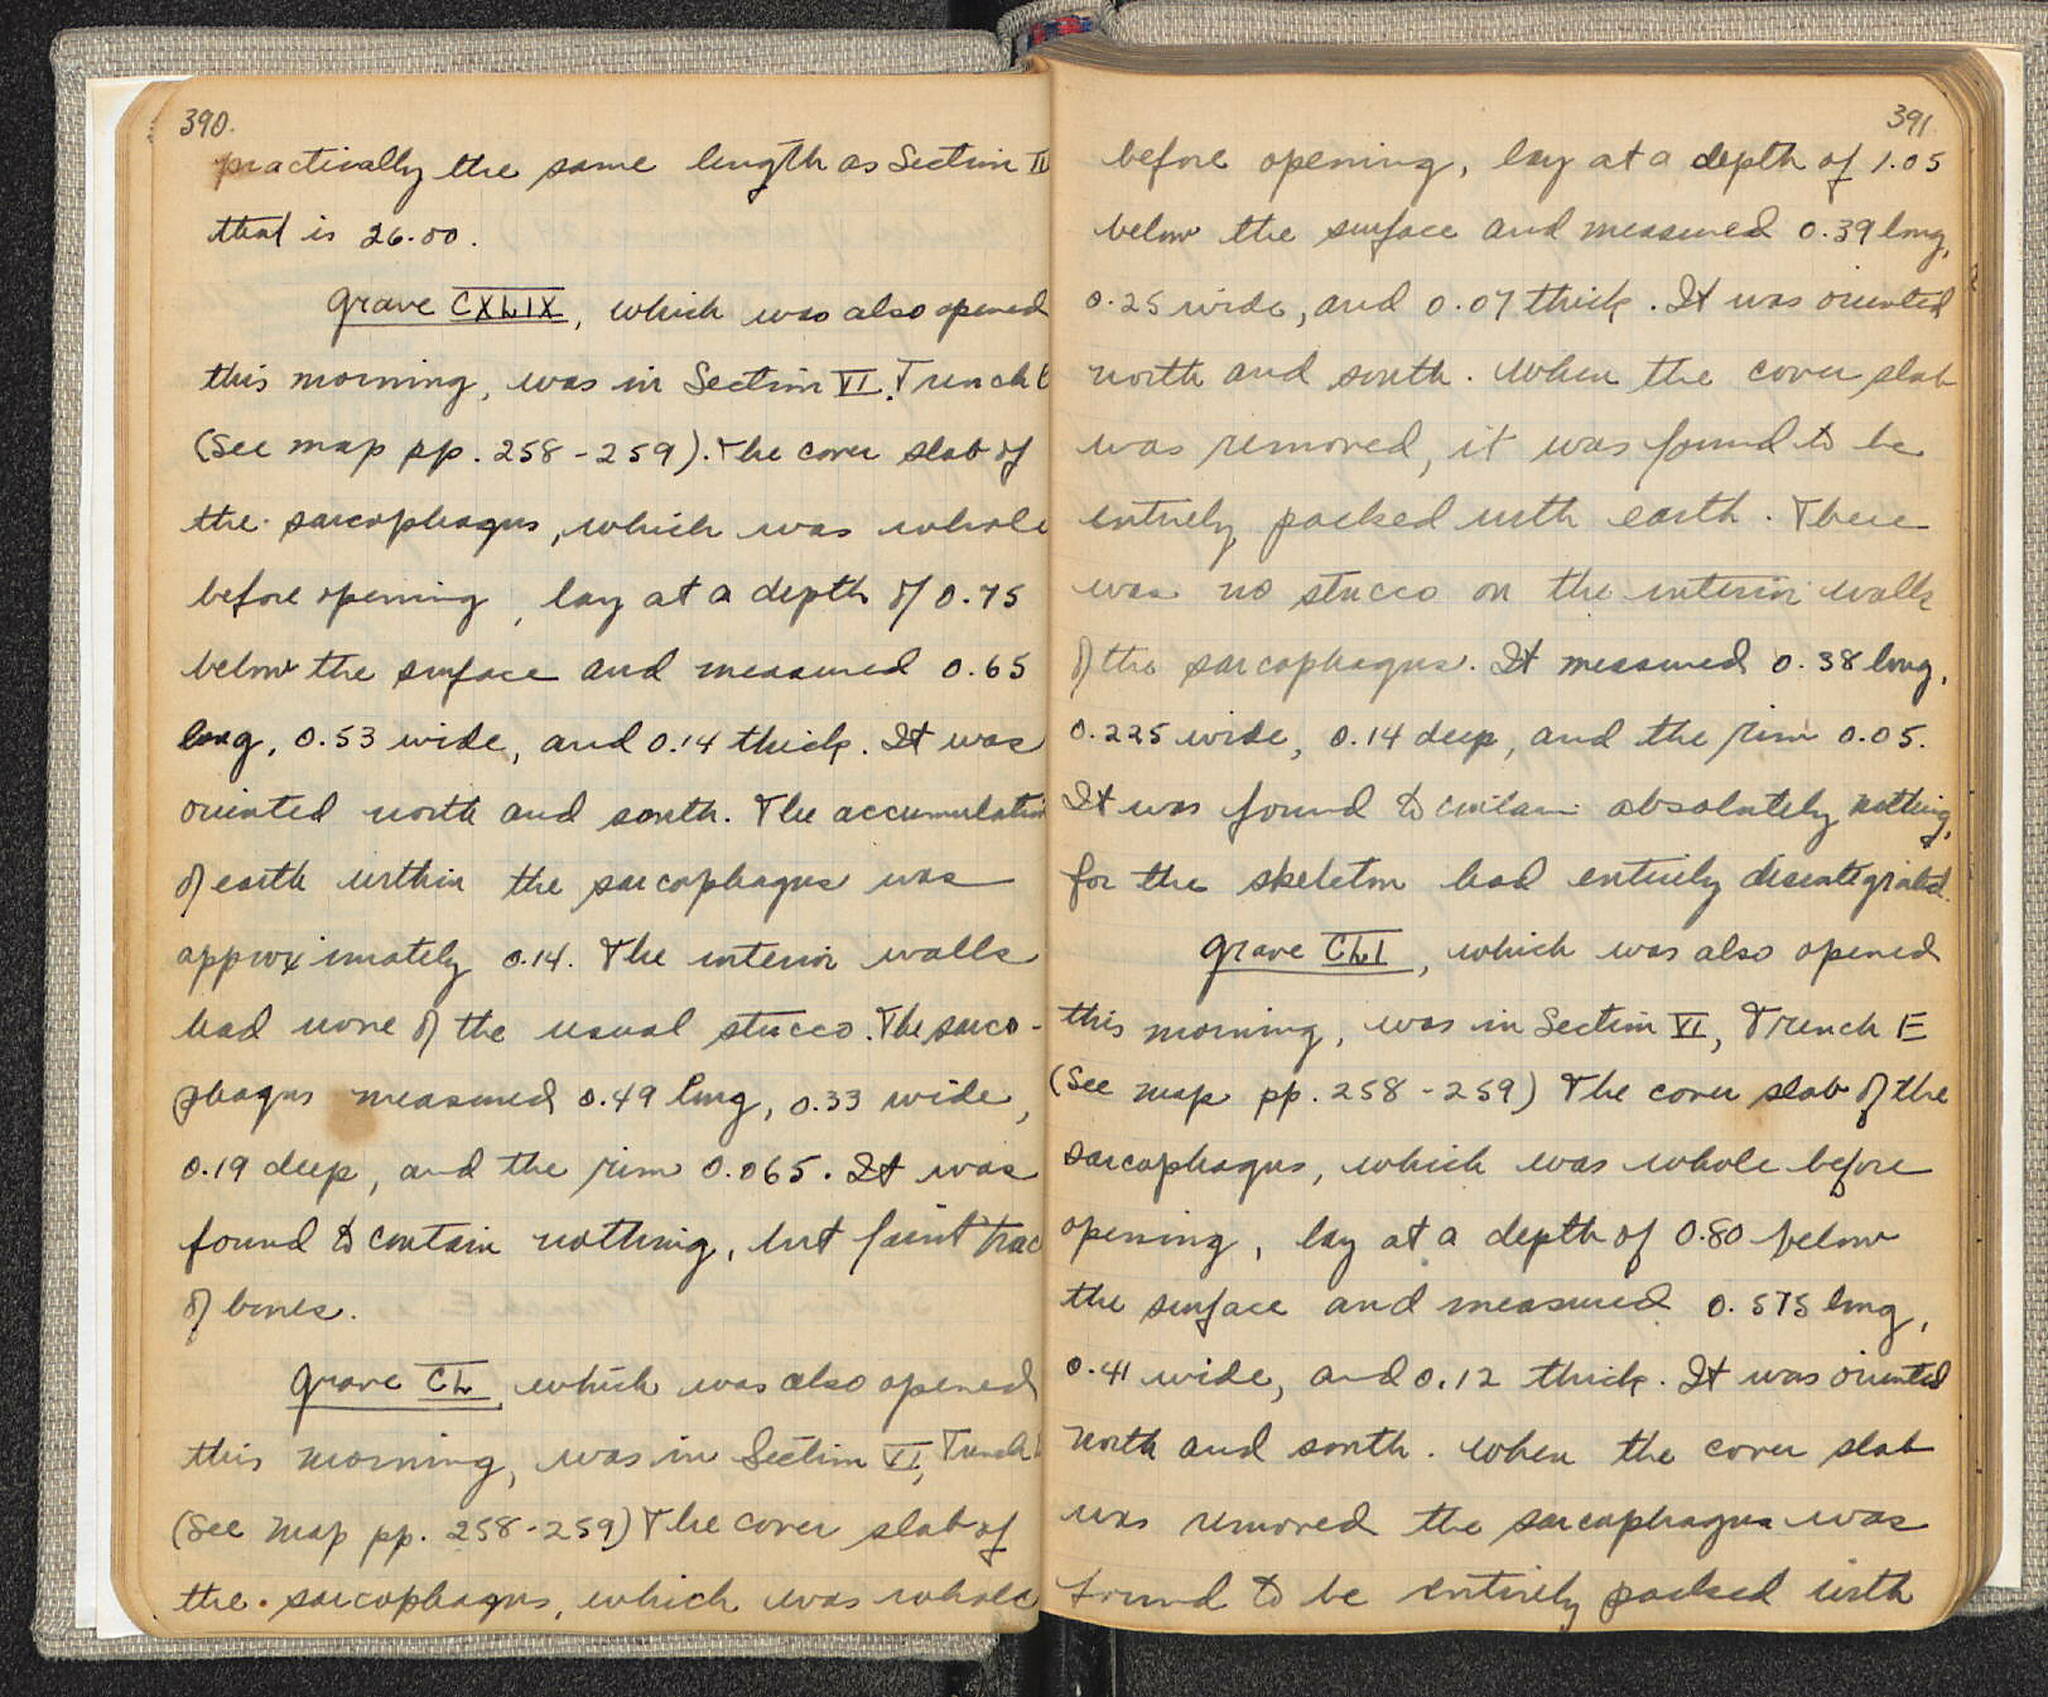 390.
practically the same length as Section II
that is 26.00.
Grave CXLIX, which was also opened
this morning, was in Section VI, Trench
(See map pp. 258-259). The cover slab of
the sarcophagus, which was whole
before opening, lay at a depth of 0.75
below the surface and measured 0.65
long, 0.53 wide, and 0.14 thick. It was
oriented north and south. The accumulation
of earth within the sarcophagus was
approximately 0.14. The interior walls
had none of the usual stucco. The sarco-
phagus measured 0.49 long, 0.33 wide,
0.19 deep, and the rim 0.065. It was
found to contain nothing, but faint trac
of bones.
Grave CL, which was also opened
this morning, was in Section VI, Trench
(See map pp. 258-259) The cover slab of
the sarcophagus, which was whole
391
before opening, lay at a depth of 1.05
below the surface and measured 0.39 long,
0.25 wide, and 0.07 thick. It was oriented
north and south. When the cover slab
was removed, it was found to be
entirely packed with earth. There
was no stucco on the interior walls
of the sarcophagus. It measured 0.38 long,
0.225 wide, 0.14 deep, and the rim 0.05.
It was found to contain absolutely nothing,
for the skeleton had entirely disentigrated.
Grave CLI, which was also opened
this morning, was in Section VI, Trench E
(See map pp. 258-259) The cover slab of the
sarcophagus, which was whole before
opening, lay at a depth of 0.80 below
the surface and measured 0.575 long,
0.41 wide, and 0.12 thick. It was oriented
north and south. When the cover slab
was removed the sarcophagus was
found to be entirely packed with